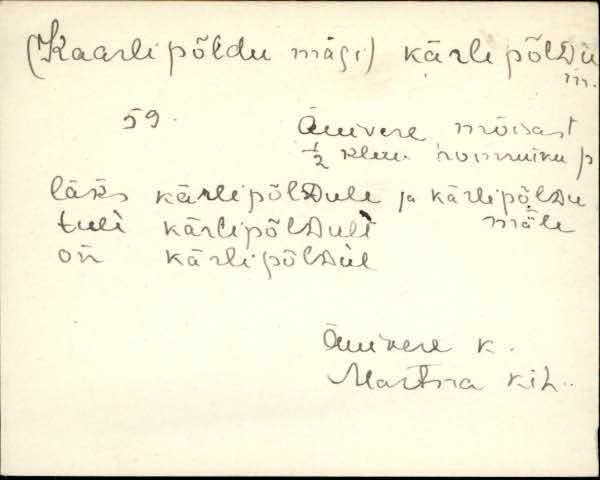 (Kaarli põldu mägi) kärli põlDù
m.
59.
Änivere mõisast
1/2 klm. hommiku p
läks kärlipõlDule ja kärlipõlDu
tuli kärlipõlDult mäle
on kärlipõlDul
Änivere k.
Martna kih.